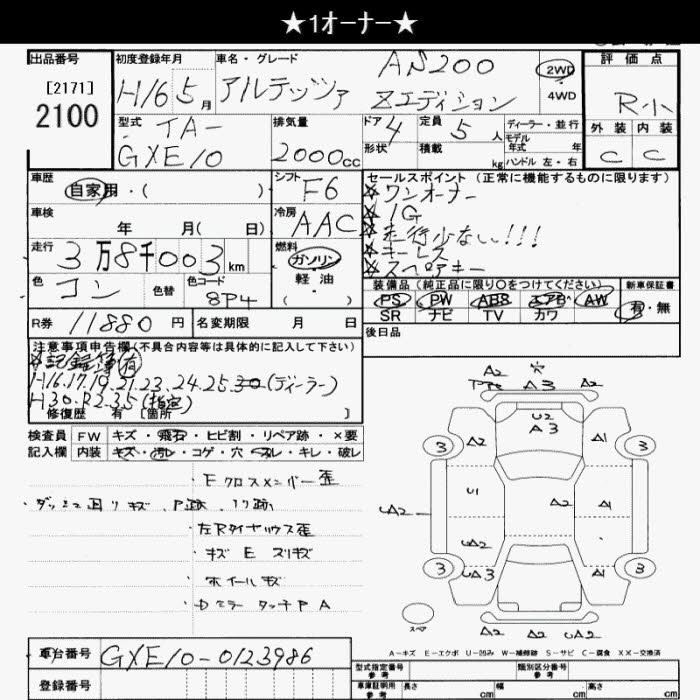 ★1オーナー★
出品番号
[2171]
2100
初度登録年月
H16 5月
車名・グレード
アルテッツァ
AS200
Zエディション
2WD
4WD
評価点
R小
外装 内装
C C
型式
TA-
GXE10
排気量
2000cc
ドア 4
形状
定員 5人
積載 kg
ディーラー・並行
モデル
年式 年
ハンドル 左・右
車歴
自家用・( )
シフト
F6
車検
年 月( 日)
冷房
AAC
走行
3万8千003km
燃料
ガソリン
軽・油
( )
色
コン
色替
色コード
8P4
R券 11880円
名変期限 月 日
セールスポイント(正常に機能するものに限ります)
☆ワンオーナー
☆1G
☆走行少ない!!!
☆キーレス
☆スペアキー
装備品(純正品に限り○をつけてください)
PS PW ABS エアB AW
SR ナビ TV カワ
新車保証書
有・無
後日品
注意事項申告欄(不具合内容等は具体的に記入して下さい)
☆記録簿(有)
H16.17.19.21.23.24.25.30(ディーラー)
H30.R2.3.5(指定)
修復歴 有 [箇所 ]
検査員
記入欄
FW キズ・飛石・ヒビ割・リペア跡・×要
内装 キズ・汚レ・コゲ・穴・スレ・キレ・破レ
・Fクロスメンバー歪
・ダッシュ回りキズ、P跡、ノリ跡
・左Rタイヤハウス歪
・キズ E スリキズ
・ホイールキズ
・Dミラー タッチPA
A2
A3
A2
U2
A3
A2
A1
3
3
U1
A2
A1
UA2
UA2
UA3
A1
3
3
スペア
A2
A2
UA2
A-キズ E-エクボ U-凹み W-補修跡 S-サビ C-腐食 XX-交換済
車台番号
GXE10-0123986
登録番号
型式指定番号
参考
類別区分番号
参考
車庫証明用
参考
長さ cm
幅 cm
高さ cm